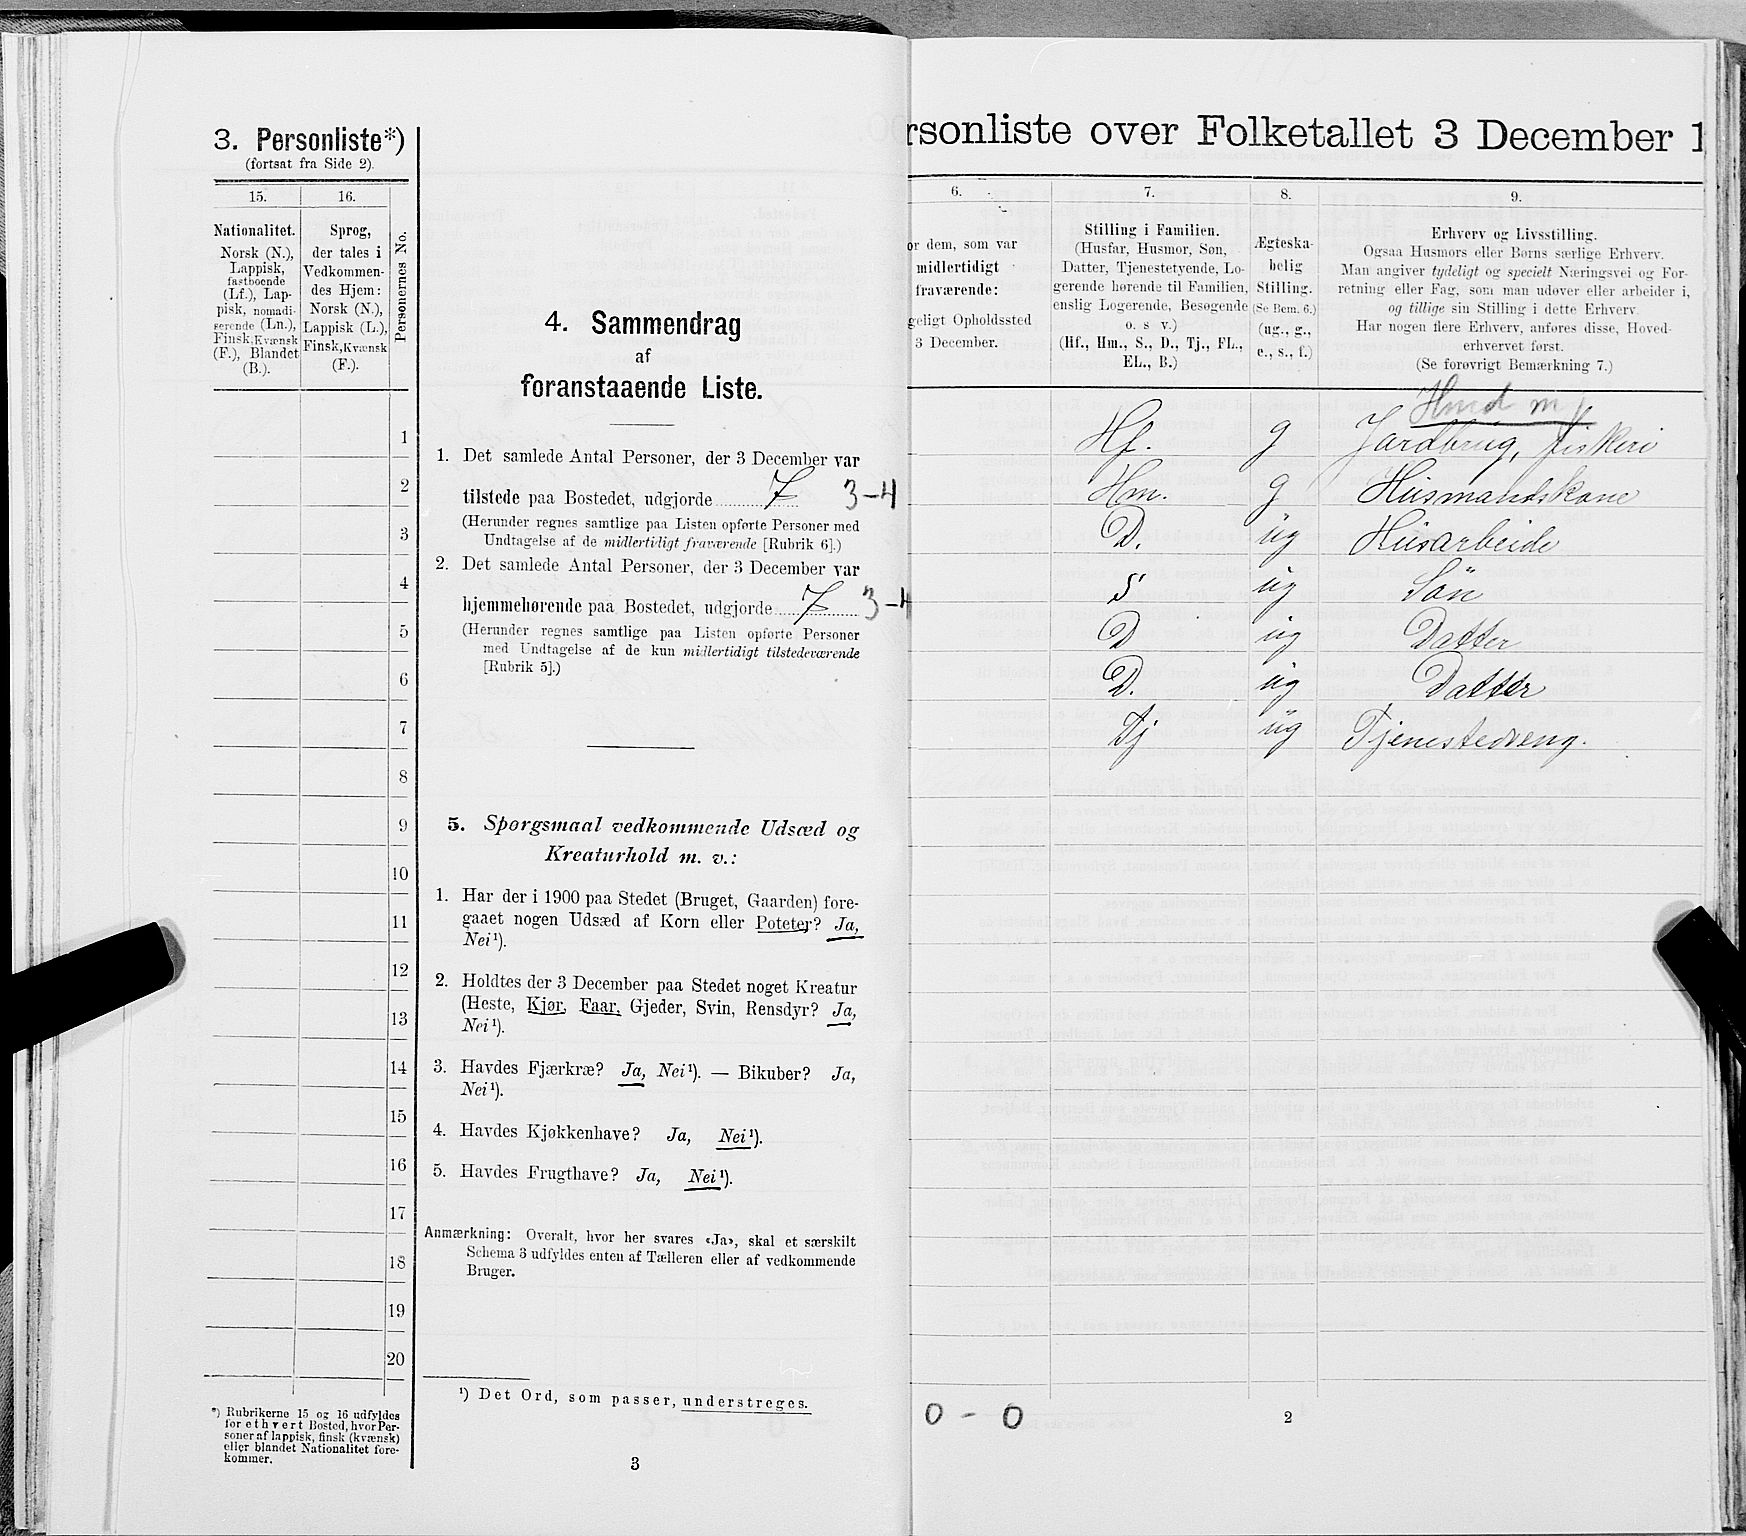 3. Personliste*)
(fortsat fra Side 2).
15.
16.
Personernes No.
Nationalitet.
Norsk (N.),
Lappisk,
fastboende
(Lf.), Lap-
pisk, nomadi-
serende (Ln.),
Finsk, Kvænsk
(F.), Blandet
(B.).
Sprog,
der tales i
Vedkommen-
des Hjem:
Norsk (N.),
Lappisk (L.),
Finsk, Kvænsk
(F.).
1
2
3
4
5
6
7
8
9
10
11
12
13
14
15
16
17
18
19
20
*) Rubrikerne 15 og 16 udfyldes
for ethvert Bosted, hvor Per-
soner af lappisk, finsk (kvænsk)
eller blandet Nationalitet fore-
kommer.
4. Sammendrag
af
foranstaaende Liste.
1. Det samlede Antal Personer, der 3 December var
tilstede paa Bostedet, udgjorde 7 3-4
(Herunder regnes samtlige paa Listen opførte Personer med
Undtagelse af de midlertidigt fraværende [Rubrik 6].)
2. Det samlede Antal Personer, der 3 December var
hjemmehørende paa Bostedet, udgjorde 7 3-4
(Herunder regnes samtlige paa Listen opførte Personer
med Undtagelse af de kun midlertidigt tilstedeværende
[Rubrik 5].)
5. Spørgsmaal vedkommende Udsæd og
Kreaturhold m. v.:
1. Har der i 1900 paa Stedet (Bruget, Gaarden) fore-
gaaet nogen Udsæd af Korn eller Poteter? Ja,
Nei¹).
2. Holdtes der 3 December paa Stedet noget Kreatur
(Heste, Kjør, Faar, Gjeder, Svin, Rensdyr? Ja,
Nei¹).
3. Havdes Fjærkræ? Ja, Nei¹). — Bikuber? Ja,
Nei¹).
4. Havdes Kjøkkenhave? Ja, Nei¹).
5. Havdes Frugthave? Ja, Nei¹).
Anmærkning: Overalt, hvor her svares «Ja», skal et særskilt
Schema 3 udfyldes enten af Tælleren eller af vedkommende
Bruger.
¹) Det Ord, som passer, understreges.
3
rsonliste over Folketallet 3 December 1
6.
7.
8.
9.
or dem, som var
midlertidigt
fraværende:
geligt Opholdssted
3 December.
Stilling i Familien.
(Husfar, Husmor, Søn,
Datter, Tjenestetyende, Lo-
gerende hørende til Familien,
enslig Logerende, Besøgende
o. s v.)
(Hf., Hm., S., D., Tj., FL.,
EL., B.)
Ægteska-
belig
Stilling.
(Se Bem. 6.)
(ug., g.,
e., s., f.)
Erhverv og Livsstilling.
Ogsaa Husmors eller Børns særlige Erhverv.
Man angiver tydeligt og specielt Næringsvei og For-
retning eller Fag, som man udøver eller arbeider i,
og tillige sin Stilling i dette Erhverv.
Har nogen flere Erhverv, anføres disse, Hoved-
erhvervet først.
(Se forøvrigt Bemærkning 7.)
Hmd m j
Hf. g Jordbrug, fiskeri
Hm. g Husmandskone
D. ug Husarbeide
S ug Sön
D ug Datter
D. ug Datter
Tj ug Tjenestedreng.
0 - 0
2